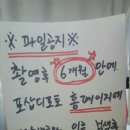 ※ 파일공지 ※
촬영후 6개월 안에
포샵디포토 홈페이지에